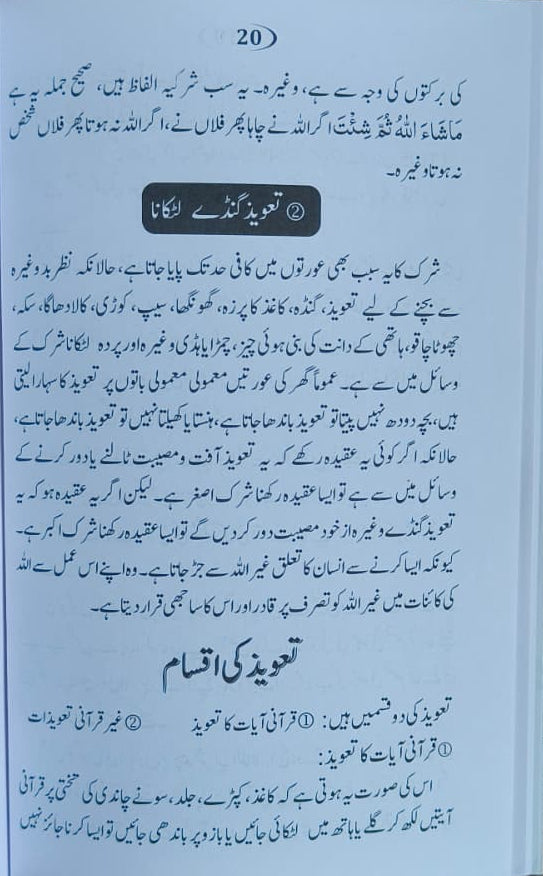 20
کی برکتوں کی وجہ سے ہے، وغیرہ۔ یہ سب شرکیہ الفاظ ہیں، صحیح جملہ یہ ہے
مَاشَاءَ اللّٰهُ ثُمَّ شِئْتَ اگر اللہ نے چاہا پھر فلاں نے، اگر اللہ نہ ہوتا پھر فلاں شخص
نہ ہوتا وغیرہ۔
② تعویذ گنڈے لٹکانا
شرک کا یہ سبب بھی عورتوں میں کافی حد تک پایا جاتا ہے، حالانکہ نظر بد وغیرہ
سے بچنے کے لیے تعویذ، گنڈہ، کاغذ کا پرزہ، گھونگھا، سیپ، کوڑی، کالا دھاگا، سکہ،
چھوٹا چاقو، ہاتھی کے دانت کی بنی ہوئی چیز، چمڑا یا ہڈی وغیرہ اور پردہ لٹکانا شرک کے
وسائل میں سے ہے۔ عموماً گھر کی عورتیں معمولی معمولی باتوں پر تعویذ کا سہارا لیتی
ہیں، بچہ دودھ نہیں پیتا تو تعویذ باندھا جاتا ہے، ہنستا یا کھیلتا نہیں تو تعویذ باندھا جاتا ہے،
حالانکہ اگر کوئی یہ عقیدہ رکھے کہ یہ تعویذ آفت و مصیبت ٹالنے یا دور کرنے کے
وسائل میں سے ہے تو ایسا عقیدہ رکھنا شرک اصغر ہے۔ لیکن اگر یہ عقیدہ ہو کہ یہ
تعویذ گنڈے وغیرہ از خود مصیبت دور کر دیں گے تو ایسا عقیدہ رکھنا شرک اکبر ہے۔
کیونکہ ایسا کرنے سے انسان کا تعلق غیر اللہ سے جڑ جاتا ہے۔ وہ اپنے اس عمل سے اللہ
کی کائنات میں غیر اللہ کو تصرف پر قادر اور اس کا ساجھی قرار دیتا ہے۔
تعویذ کی اقسام
تعویذ کی دو قسمیں ہیں: ① قرآنی آیات کا تعویذ ② غیر قرآنی تعویذات
① قرآنی آیات کا تعویذ:
اس کی صورت یہ ہوتی ہے کہ کاغذ، کپڑے، جلد، سونے چاندی کی تختی پر قرآنی
آیتیں لکھ کر گلے یا ہاتھ میں لٹکائی جائیں یا بازو پر باندھی جائیں تو ایسا کرنا جائز نہیں